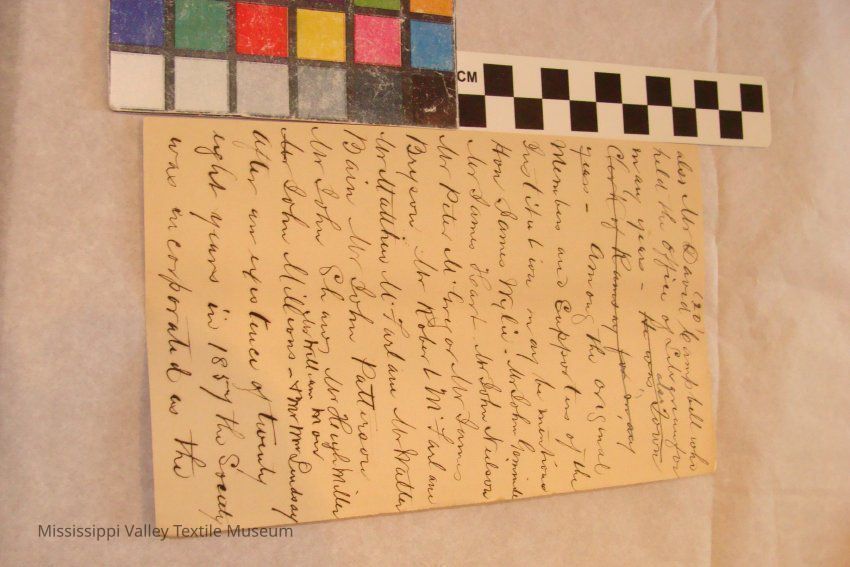 '20'
also Mr David Campbell who
held the Office of Librarian for
many years - He was also Town
Clerk of Ramsay for many
years - Among the original
Members and Supporters of the
Institution may be mentioned
Hon James Wylie - Mr John
Mr James Heart Mr John Neilson
Mr Peter McGregor Mr James
Bryson Mr Robert McFarlane
Mr Matthew McFarlane Mr Walter
Bain Mr John Patterson
Mr John Shaw Mr Hugh Miller
Mr William Moir
Mr John Millions - & Mr Wm Lindsay
After an existence of twenty
eight years in 1857 the Society
was incorporated as the
CM
Mississippi Valley Textile Museum